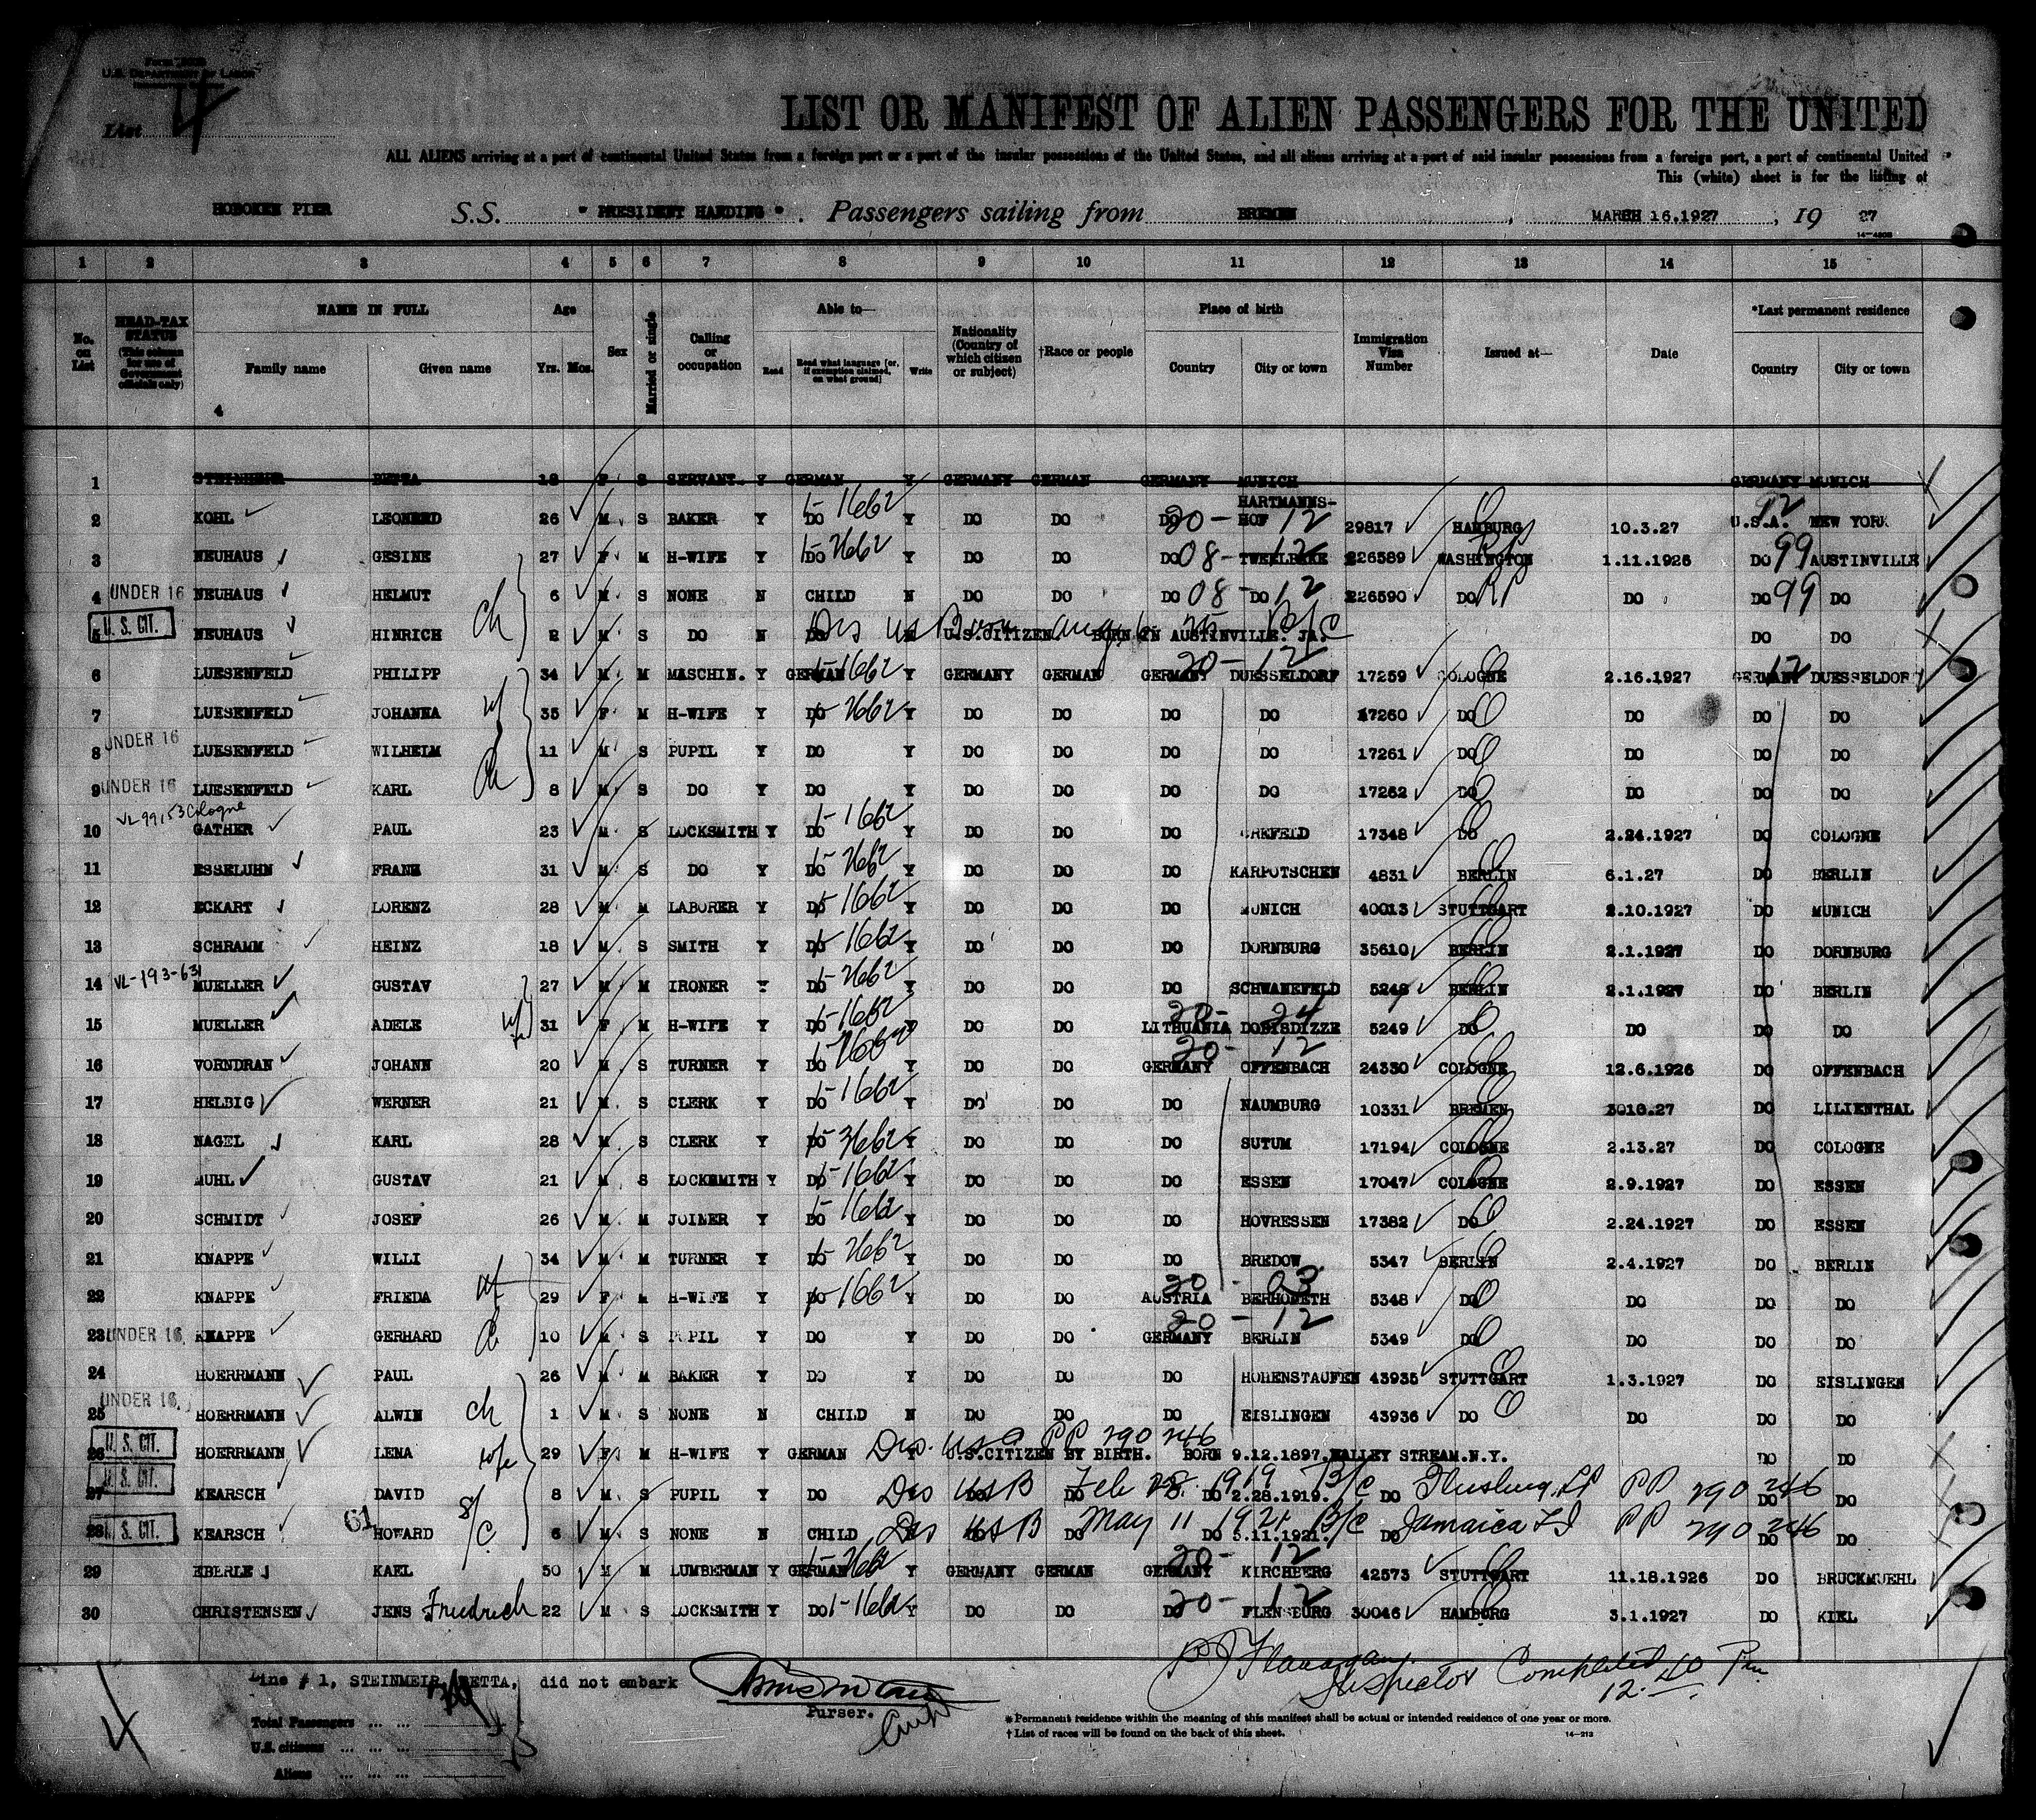 Form 500B
U.S. DEPARTMENT OF LABOR
List 4
LIST OR MANIFEST OF ALIEN PASSENGERS FOR THE UNITED
ALL ALIENS arriving at a port of continental United States from a foreign port or a port of the insular possessions of the United States, and all aliens arriving at a port of said insular possessions from a foreign port, a port of continental United
This (white) sheet is for the listing of
HOBOKEN PIER S.S. " PRESIDENT HARDING ". Passengers sailing from BREMEN, MARCH 16.1927, 19 27
14-430B
1 2 3 4 5 6 7 8 9 10 11 12 13 14 15
No. on List
HEAD-TAX STATUS (This column for use of Government officials only)
NAME IN FULL Family name Given name
Age Yrs. Mos.
Sex
Married or single
Calling or occupation
Able to— Read Read what language [or, if exemption claimed, on what ground] Write
Nationality (Country of which citizen or subject)
†Race or people
Place of birth Country City or town
Immigration Visa Number
Issued at—
Date
*Last permanent residence Country City or town
4
1 BETTA 18 F S SERVANT Y GERMAN Y GERMANY GERMAN GERMANY MUNICH GERMANY MUNICH
2 KOHL LEONHRD 26 M S BAKER Y DO 1-1662 Y DO DO DO 20 - HARTMANNS-HOF 12 29817 HAMBURG 10.3.27 U.S.A. 92 NEW YORK
3 NEUHAUS GESINE 27 F M H-WIFE Y DO 1-2662 Y DO DO DO 08 - 12 226589 WASHINGTON 1.11.1926 DO 99 AUSTINVILLE
4 UNDER 16 NEUHAUS HELMUT ch 6 M S NONE N CHILD N DO DO DO 08 - DO 12 226590 DO RP DO DO 99 DO
5 U. S. CIT. NEUHAUS HINRICH 2 M S DO N DO U.S.CITIZEN BORN IN AUSTINVILLE. JA. B/C DO DO
6 LUESENFELD PHILIPP 34 M M MASCHIN. Y GERMAN 1-1662 Y GERMANY GERMAN GERMANY 20 - 12 DUESSELDORF 17259 COLOGNE 2.16.1927 GERMANY 12 DUESSELDORF
7 LUESENFELD JOHANNA wf 35 F M H-WIFE Y DO 2662 Y DO DO DO DO 17260 DO DO DO DO
8 UNDER 16 LUESENFELD WILHELM 11 M S PUPIL Y DO Y DO DO DO DO 17261 DO DO DO DO
9 UNDER 16 LUESENFELD KARL ch 8 M S DO Y DO Y DO DO DO DO 17262 DO DO DO DO
VL 99153 Cologne
10 GATHER PAUL 23 M S LOCKSMITH Y DO 1-1662 Y DO DO DO CREFELD 17348 DO 2.24.1927 DO COLOGNE
11 ESSELUHN FRANZ 31 M S DO Y DO 1-2662 Y DO DO DO KARPOTSCHEN 4831 BERLIN 6.1.27 DO BERLIN
12 ECKART LORENZ 28 M M LABORER Y DO 1-1662 Y DO DO DO MUNICH 40013 STUTTGART 2.10.1927 DO MUNICH
13 SCHRAMM HEINZ 18 M S SMITH Y DO 1-1662 Y DO DO DO DORNBURG 35610 BERLIN 2.1.1927 DO DORNBURG
14 VL-193-631 MUELLER GUSTAV 27 M M IRONER Y DO 1-2662 Y DO DO DO SCHWANEFELD 5248 BERLIN 2.1.1927 DO BERLIN
15 MUELLER ADELE wf 31 F M H-WIFE Y DO 1-1662 Y DO DO LITHUANIA 20 - 24 DOBISDIZZE 5249 DO DO DO DO
16 VORNDRAN JOHANN 20 M S TURNER Y DO 1-2662 Y DO DO GERMANY 20 - 12 OFFENBACH 24330 COLOGNE 12.6.1926 DO OFFENBACH
17 HELBIG WERNER 21 M S CLERK Y DO 1-1662 Y DO DO DO NAUMBURG 10331 BREMEN 3016.27 DO LILIENTHAL
18 NAGEL KARL 28 M S CLERK Y DO 3662 Y DO DO DO SUTUM 17194 COLOGNE 2.13.27 DO COLOGNE
19 MUHL GUSTAV 21 M S LOCKSMITH Y DO 1-1662 Y DO DO DO ESSEN 17047 COLOGNE 2.9.1927 DO ESSEN
20 SCHMIDT JOSEF 26 M M JOINER Y DO 1-1662 Y DO DO DO HOVRESSEN 17382 DO 2.24.1927 DO ESSEN
21 KNAPPE WILLI 34 M M TURNER Y DO 1-2662 Y DO DO DO BREDOW 5347 BERLIN 2.4.1927 DO BERLIN
22 KNAPPE FRIEDA wf 29 F M H-WIFE Y DO 1662 Y DO DO AUSTRIA 20 - 03 BERHOMETH 5348 DO DO DO DO
23 UNDER 16 KNAPPE GERHARD ch 10 M S PUPIL Y DO Y DO DO GERMANY 20 - 12 BERLIN 5349 DO DO DO DO
24 HOERRMANN PAUL 26 M M BAKER Y DO Y DO DO DO HOHENSTAUFEN 43935 STUTTGART 1.3.1927 DO EISLINGEN
25 UNDER 16 HOERRMANN ALWIN ch 1 M S NONE N CHILD N DO DO DO EISLINGEN 43936 DO DO DO DO
26 U. S. CIT. HOERRMANN LENA wife 29 F M H-WIFE Y GERMAN Y Dis. USA PP 290 246 U.S.CITIZEN BY BIRTH. BORN 9.12.1897.VALLEY STREAM.N.Y. DO DO
27 U. S. CIT. KEARSCH DAVID 8 M S PUPIL Y DO Dis USB DO DO Feb 28. 1919 DO 2.28.1919. B/C DO Flushing LI PP 290 246 DO DO
28 U. S. CIT. KEARSCH 61 HOWARD S/C 6 M S NONE N CHILD Dis USB DO May 11 1921 DO 5.11.1921. B/C DO Jamaica LI PP 290 246 DO DO
29 EBERLE KARL 50 M M LUMBERMAN Y GERMAN 1-2662 Y GERMANY GERMAN GERMANY 20 - 12 KIRCHBERG 42573 STUTTGART 11.18.1926 DO BRUCKMUEHL
30 CHRISTENSEN JENS Friedrich 22 M S LOCKSMITH Y DO 1-1662 Y DO DO DO 20 - 12 FLENSBURG 30046 HAMBURG 3.1.1927 DO KIEL
Line # 1, STEINMEIR, BETTA, did not embark
Purser.
Flanagan Inspector Completed 12.40 Pm
Total Passengers ... ...
U.S. citizens ... ... ...
Aliens ... ... ...
* Permanent residence within the meaning of this manifest shall be actual or intended residence of one year or more.
† List of races will be found on the back of this sheet.
14-213